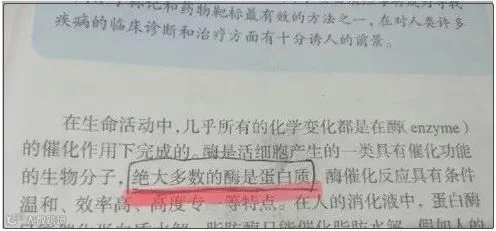 标记和药物靶标最有效的方法之一,在对人类许多
疾病的临床诊断和治疗方面有十分诱人的前景。
在生命活动中,几乎所有的化学变化都是在酶(enzyme)
的催化作用下完成的。酶是活细胞产生的一类具有催化功能
的生物分子,绝大多数的酶是蛋白质 酶催化反应具有条件
温和、效率高、高度专一等特点。在人的消化液中,蛋白酶
能催化脂肪水解